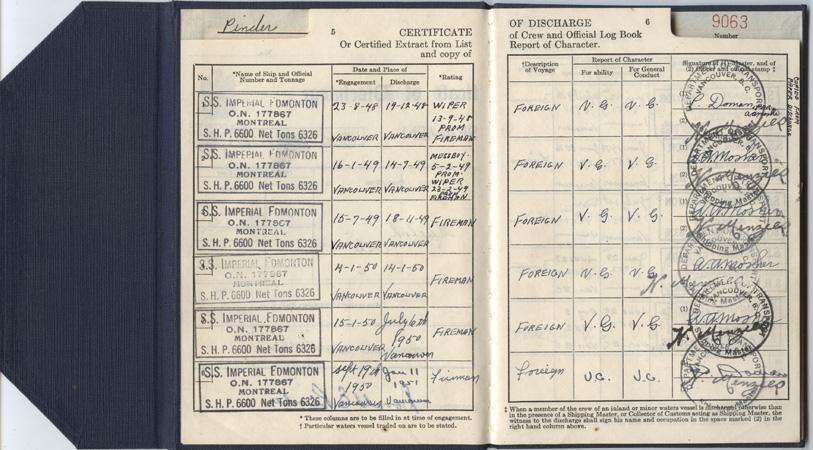 Pinder
5 CERTIFICATE
Or Certified Extract from List
and copy of
No.
*Name of Ship and Official
Number and Tonnage
Date and Place of
*Engagement
Discharge
*Rating
S.S. IMPERIAL EDMONTON
O.N. 177867
MONTREAL
S. H. P. 6600 Net Tons 6326
23-8-48 19-12-48 WIPER
13-9-48
PROM
FIREMAN
VANCOUVER VANCOUVER
S.S. IMPERIAL EDMONTON
O.N. 177867
MONTREAL
S. H. P. 6600 Net Tons 6326
16-1-49 14-7-49 MESSBOY
5-2-49
PROM
WIPER
23-2-49
FIREMAN
VANCOUVER VANCOUVER
S.S. IMPERIAL EDMONTON
O.N. 177867
MONTREAL
S. H. P. 6600 Net Tons 6326
15-7-49 18-11-49 FIREMAN
VANCOUVER VANCOUVER
S.S. IMPERIAL EDMONTON
O.N. 177867
MONTREAL
S. H. P. 6600 Net Tons 6326
4-1-50 14-1-50 FIREMAN
VANCOUVER VANCOUVER
S.S. IMPERIAL EDMONTON
O.N. 177867
MONTREAL
S. H. P. 6600 Net Tons 6326
15-1-50 July 6th
1950
FIREMAN
VANCOUVER Vancouver
S.S. IMPERIAL EDMONTON
O.N. 177867
MONTREAL
S. H. P. 6600 Net Tons 6326
Sept 19th Jan 11
1950 1951
Fireman
Vancouver Vancouver
* These columns are to be filled in at time of engagement.
† Particular waters vessel traded on are to be stated.
OF DISCHARGE 6
of Crew and Official Log Book
Report of Character.
9063
Number
†Description
of Voyage
Report of Character
For ability
For General
Conduct
FOREIGN V. G. V. G.
FOREIGN V. G. V. G.
FOREIGN V. G. V. G.
FOREIGN V. G. V. G.
FOREIGN V. G. V. G.
Foreign V.G. V.G.
DEPARTMENT OF TRANSPORT
VANCOUVER, B. C.
Shipping Master
‡ When a member of the crew of an inland or minor waters vessel is discharged otherwise than
in the presence of a Shipping Master, or Collector of Customs acting as Shipping Master, the
witness to the discharge shall sign his name and occupation in the space marked (2) in the
right hand column above.